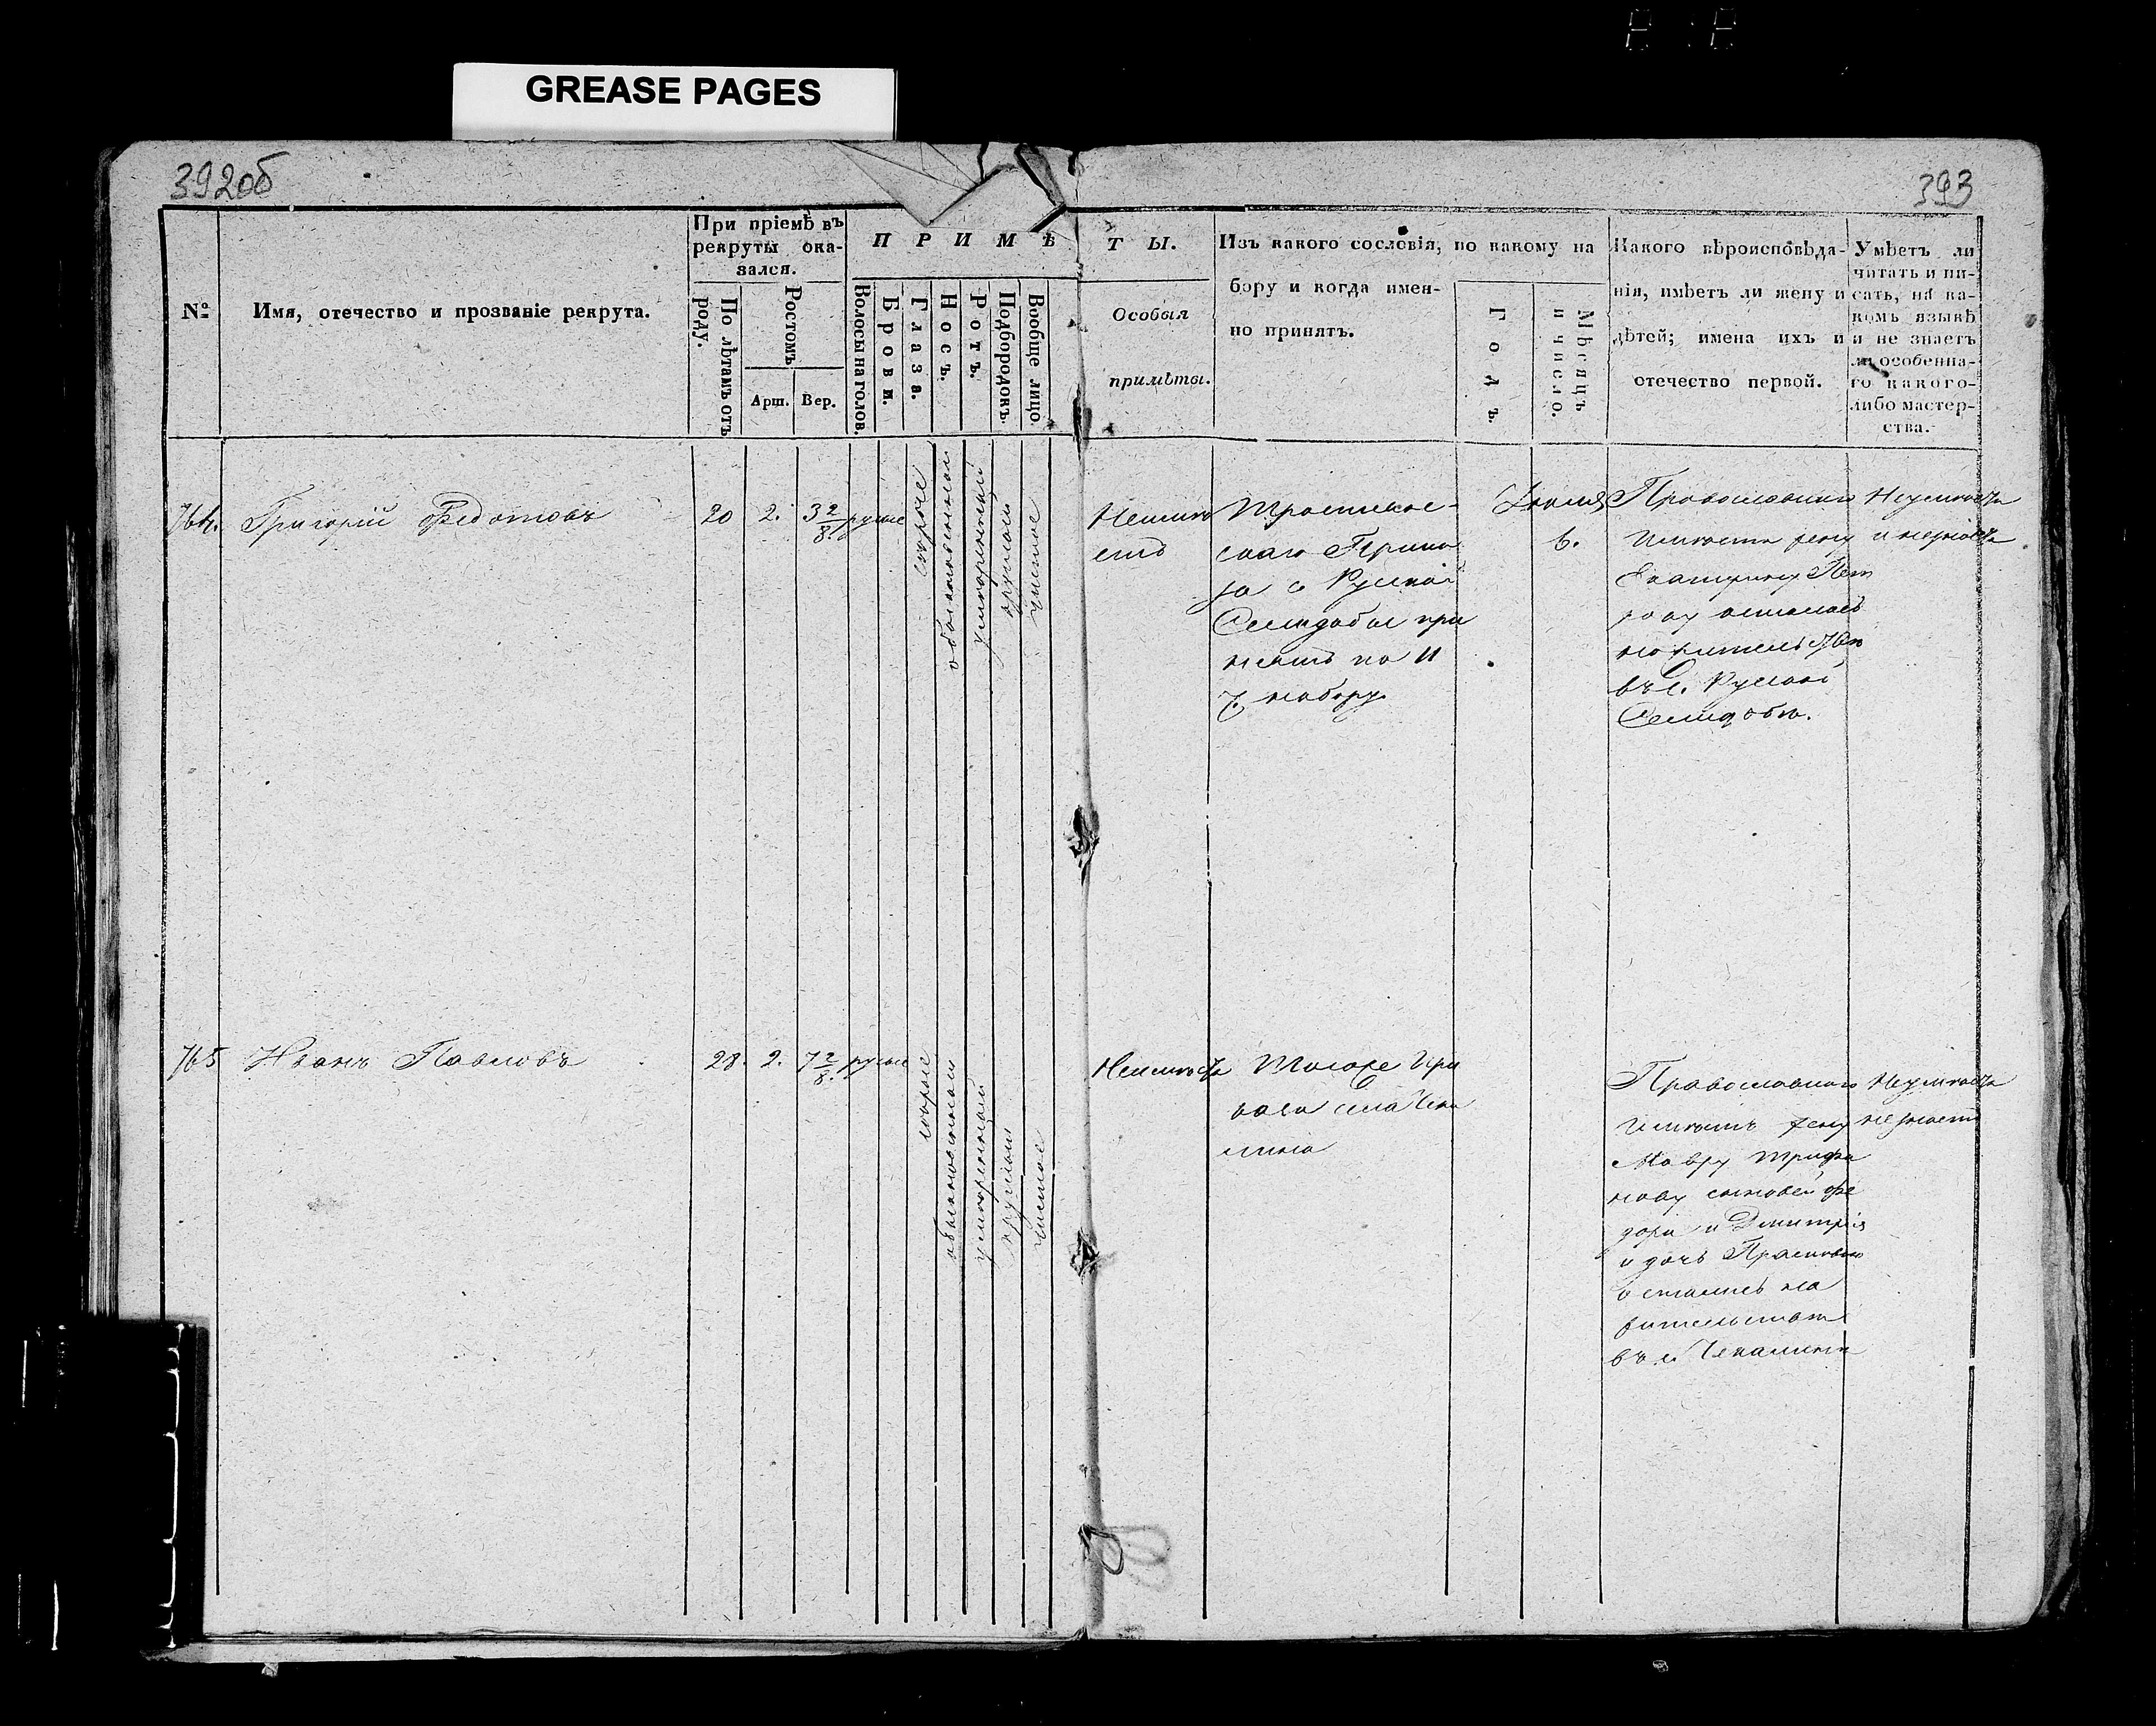 GREASE PAGES
392об
393
№
Имя, отечество и прозваніе рекрута.
При пріемѣ въ
рекруты ока-
зался.
По лѣтамъ отъ
роду.
Ростомъ
Арш.
Вер.
ПРИМѢ
Волосы на голов.
Брови.
Глаза.
Носъ.
Ротъ.
Подбородокъ
Вообще лицо
ТЫ.
Особыя
примѣты.
Изъ какого сословія, по какому на
бору и когда имен-
но принятъ.
Годъ
Мѣсяцъ
и число.
Какого вѣроисповѣда-
нія, имѣетъ ли жену и
дѣтей; имена ихъ и
отечество первой.
Умѣетъ ли
читать и пи-
сать, на ка-
комъ языкѣ
и не знаетъ
ли особенна-
го какого-
либо мастер-
ства.
764. Григорій Федотовъ 20 2. 3 2/8. русые
сѣрые
обыкновенной
умѣренный
круглой
чистое
Неимѣ
етъ
скаго
за с Руской
Семидобы при
нятъ по 11
ч. набору
Іюля
6.
Православнаго
имѣетъ жену
Екатерину Пет
рову осталась
въ с. Руской
Семидобѣ.
Неумѣетъ
и незнаетъ
765 Иванъ Павловъ 28. 2. 7 2/8. русые
сѣрые
обыкновенной
умѣренный
круглой
чистое
Неимѣетъ
Тогоже При
каза села
Православнаго
имѣетъ жену
Мавру Трифо
нову сыновей Фе
дора и Дмитрія
и дочь Прасковью
остались на
жительствѣ
въ с.
Неумѣетъ
незнаетъ